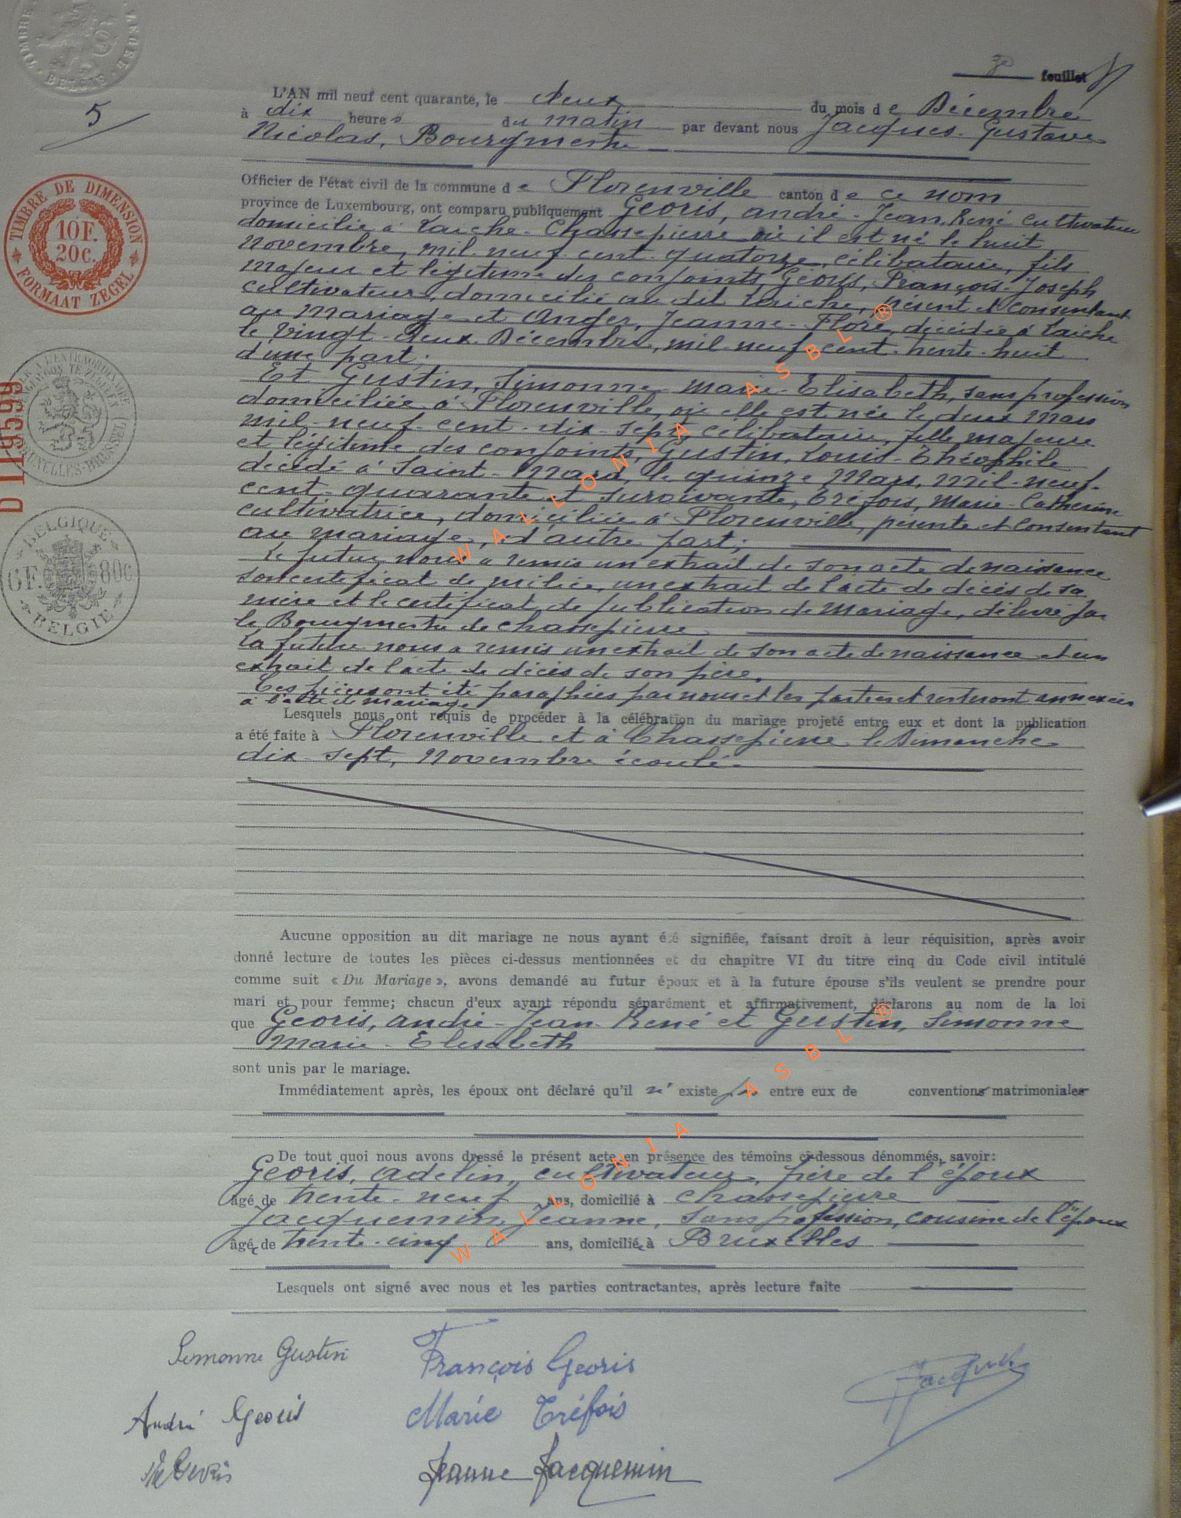 3e feuillet
5
L'AN mil neuf cent quarante, le deux du mois de Décembre
à dix heures du matin par devant nous Jacques Gustave
Nicolas, Bourgmestre
Officier de l'état civil de la commune de Florenville canton de ce nom
province de Luxembourg, ont comparu publiquement Georis, andré-Jean-René cultivateur
domicilié à Laiche-Chassepierre où il est né le huit
Novembre, mil neuf cent quatorze, célibataire, fils
majeur et légitime des conjoints Georis, François-Joseph
cultivateur, domicilié au dit Laiche, présent et consentant
au mariage et Anger, Jeanne-Flore, décédée à Laiche
le vingt-deux Décembre, mil neuf cent trente-huit
d'une part;
Et Gustin, Simonne-Marie-Elisabeth, sans profession
domiciliée à Florenville, où elle est née le deux Mars
mil-neuf-cent-dix-sept, célibataire, fille majeure
et légitime des conjoints, Gustin, Louis-Théophile
décédé à Saint-Mard, le quinze Mars, mil-neuf-
cent-quarante et survivante, Tréfois, Marie-Catherine
cultivatrice, domiciliée à Florenville, présente et consentant
au mariage, d'autre part;
Le futur nous a remis un extrait de son acte de naissance
son certificat de milice, un extrait de l'acte de décès de sa
mère et le certificat de publication de mariage, délivré par
le Bourgmestre de Chassepierre
La future nous a remis un extrait de son acte de naissance et un
extrait de l'acte de décès de son père.
Ces pièces ont été paraphées par nous et les parties et resteront annexées
à l'acte de mariage.
Lesquels nous ont requis de procéder à la célébration du mariage projeté entre eux et dont la publication
a été faite à Florenville et à Chassepierre le Dimanche
dix-sept, Novembre écoulé.
Aucune opposition au dit mariage ne nous ayant été signifiée, faisant droit à leur réquisition, après avoir
donné lecture de toutes les pièces ci-dessus mentionnées et du chapitre VI du titre cinq du Code civil intitulé
comme suit « Du Mariage », avons demandé au futur époux et à la future épouse s'ils veulent se prendre pour
mari et pour femme; chacun d'eux ayant répondu séparément et affirmativement, déclarons au nom de la loi
que Georis, andré-Jean-René et Gustin, Simonne
Marie-Elisabeth
sont unis par le mariage.
Immédiatement après, les époux ont déclaré qu'il n'existe pas entre eux de conventions matrimoniales
De tout quoi nous avons dressé le présent acte en présence des témoins ci-dessous dénommés, savoir:
Georis, adelin, cultivateur, frère de l'époux
âgé de trente-neuf ans, domicilié à Chassepierre
Jacquemin, Jeanne, sans profession, cousine de l'époux
âgée de trente-cinq ans, domiciliée à Bruxelles
Lesquels ont signé avec nous et les parties contractantes, après lecture faite
Simonne Gustin
François Georis
Jacques
André Georis
Marie Tréfois
Georis
Jeanne Jacquemin
TIMBRE DE DIMENSION
10F.
20c.
FORMAAT ZEGEL
D 119599
BELGIQUE
6F. 80c
BELGIE
WALLONIA ASBL ®
WALLONIA ASBL ®